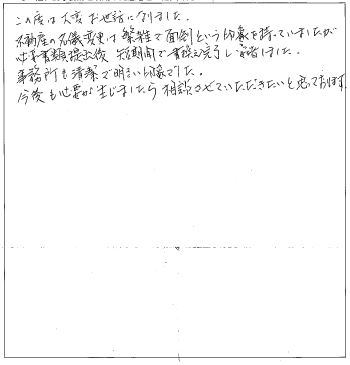 この度は大変お世話になりました。
不動産の名儀変更は繁雑で面倒という印象を持っていましたが
必要書類提出後 短期間で書換え完了し安堵しました。
事務所も清潔で明るい印象でした。
今後も必要が生じましたら相談させていただきたいと思っております。